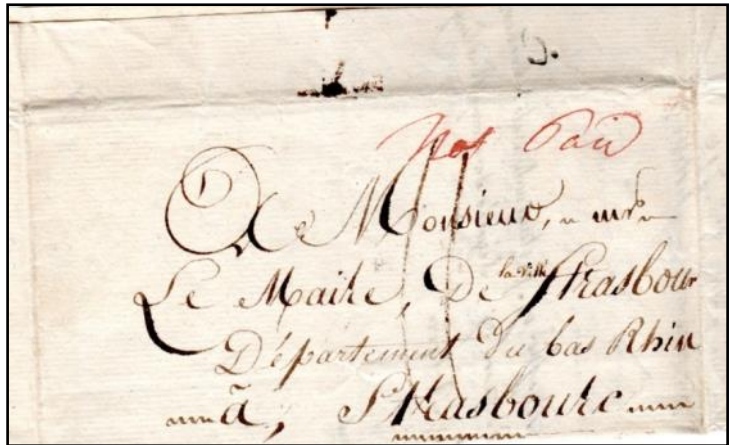 Not Paid
A Monsieur,
Le Maire, De la Ville Strasbour
Département du bas Rhin
à, Strasbourc